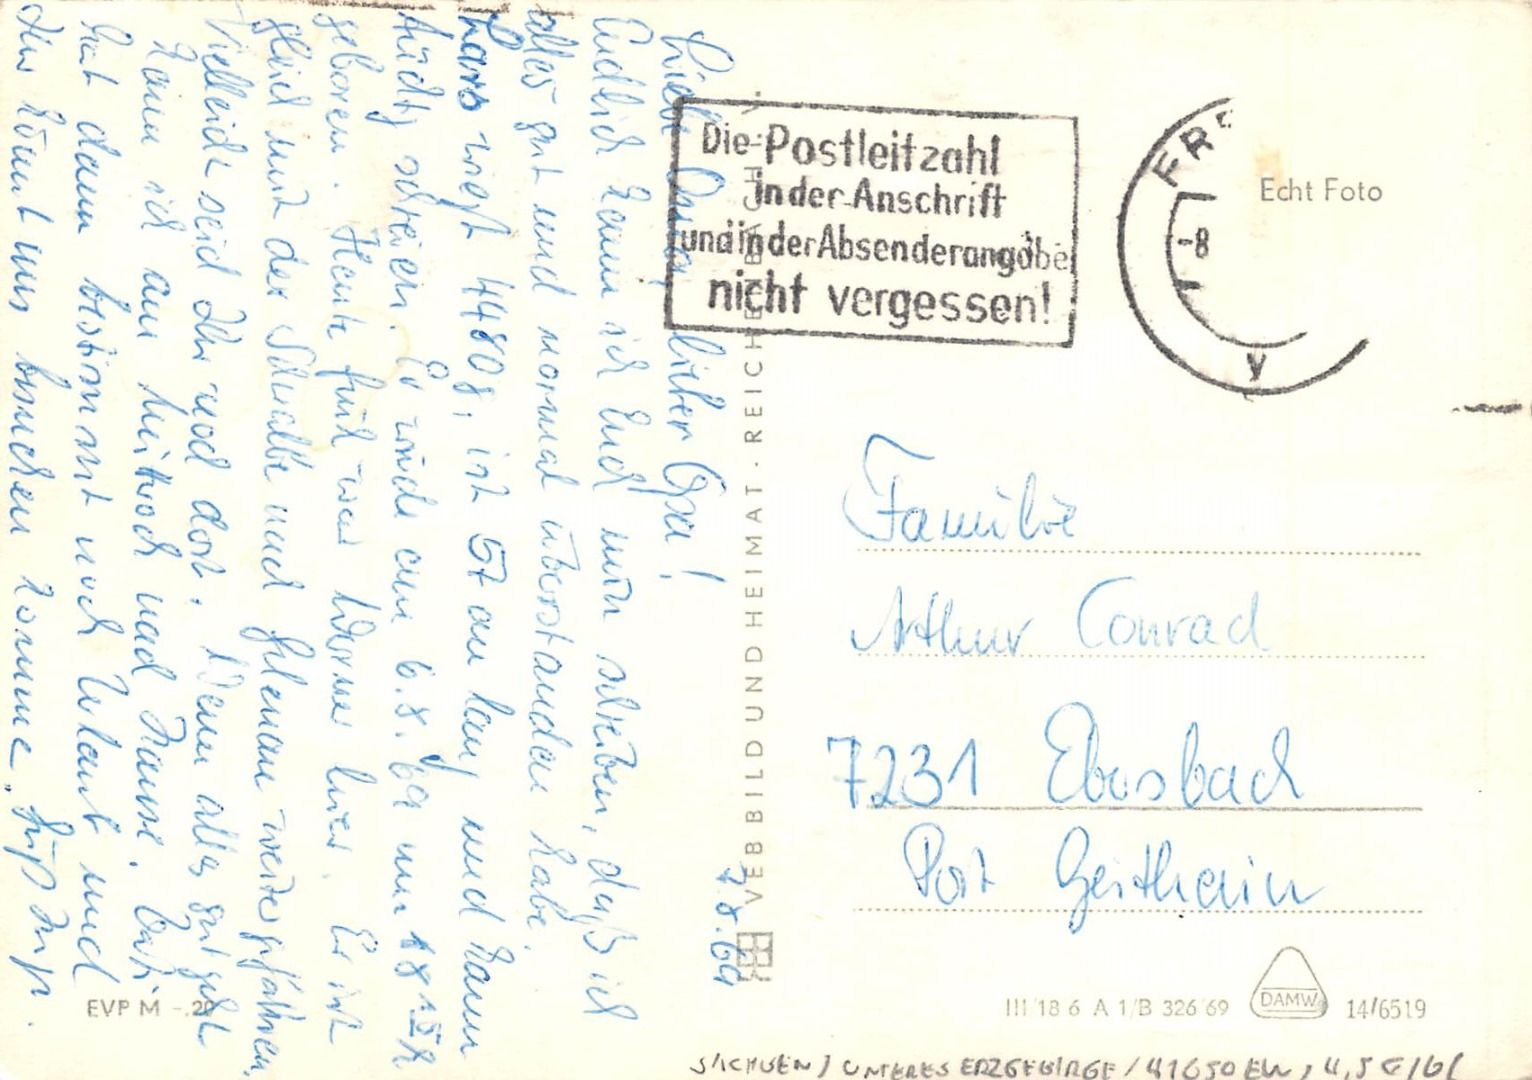 7.8.69
Liebe Oma, lieber Opa!
Endlich kann ich Euch nun schreiben, daß ich
alles gut und normal überstanden habe.
Lars wiegt 4480 g, ist 57 cm lang und kann
tüchtig schreien. Er wurde am 6.8.69 um 18 15 h
geboren. Heute früh war Werner hier. Er ist
gleich mit der Schwalbe nach weitergefahren,
Vielleicht seid Ihr noch dort. Wenn alles gut geht
kann ich am Mittwoch nach Hause.
hat dann bestimmt noch Urlaub und
Ihr könnt uns besuchen komme.
Die Postleitzahl
in der Anschrift
und in der Absenderangabe
nicht vergessen!
FRE
-8
Echt Foto
Familie
Arthur Conrad
7231 Ebersbach
Post Geithain
VEB BILD UND HEIMAT · REICHENBACH I. V.
EVP M -.20
III 18 6 A 1/B 326 69
DAMW
14/6519
SACHSEN / UNTERES ERZGEBIRGE / 41650 EW